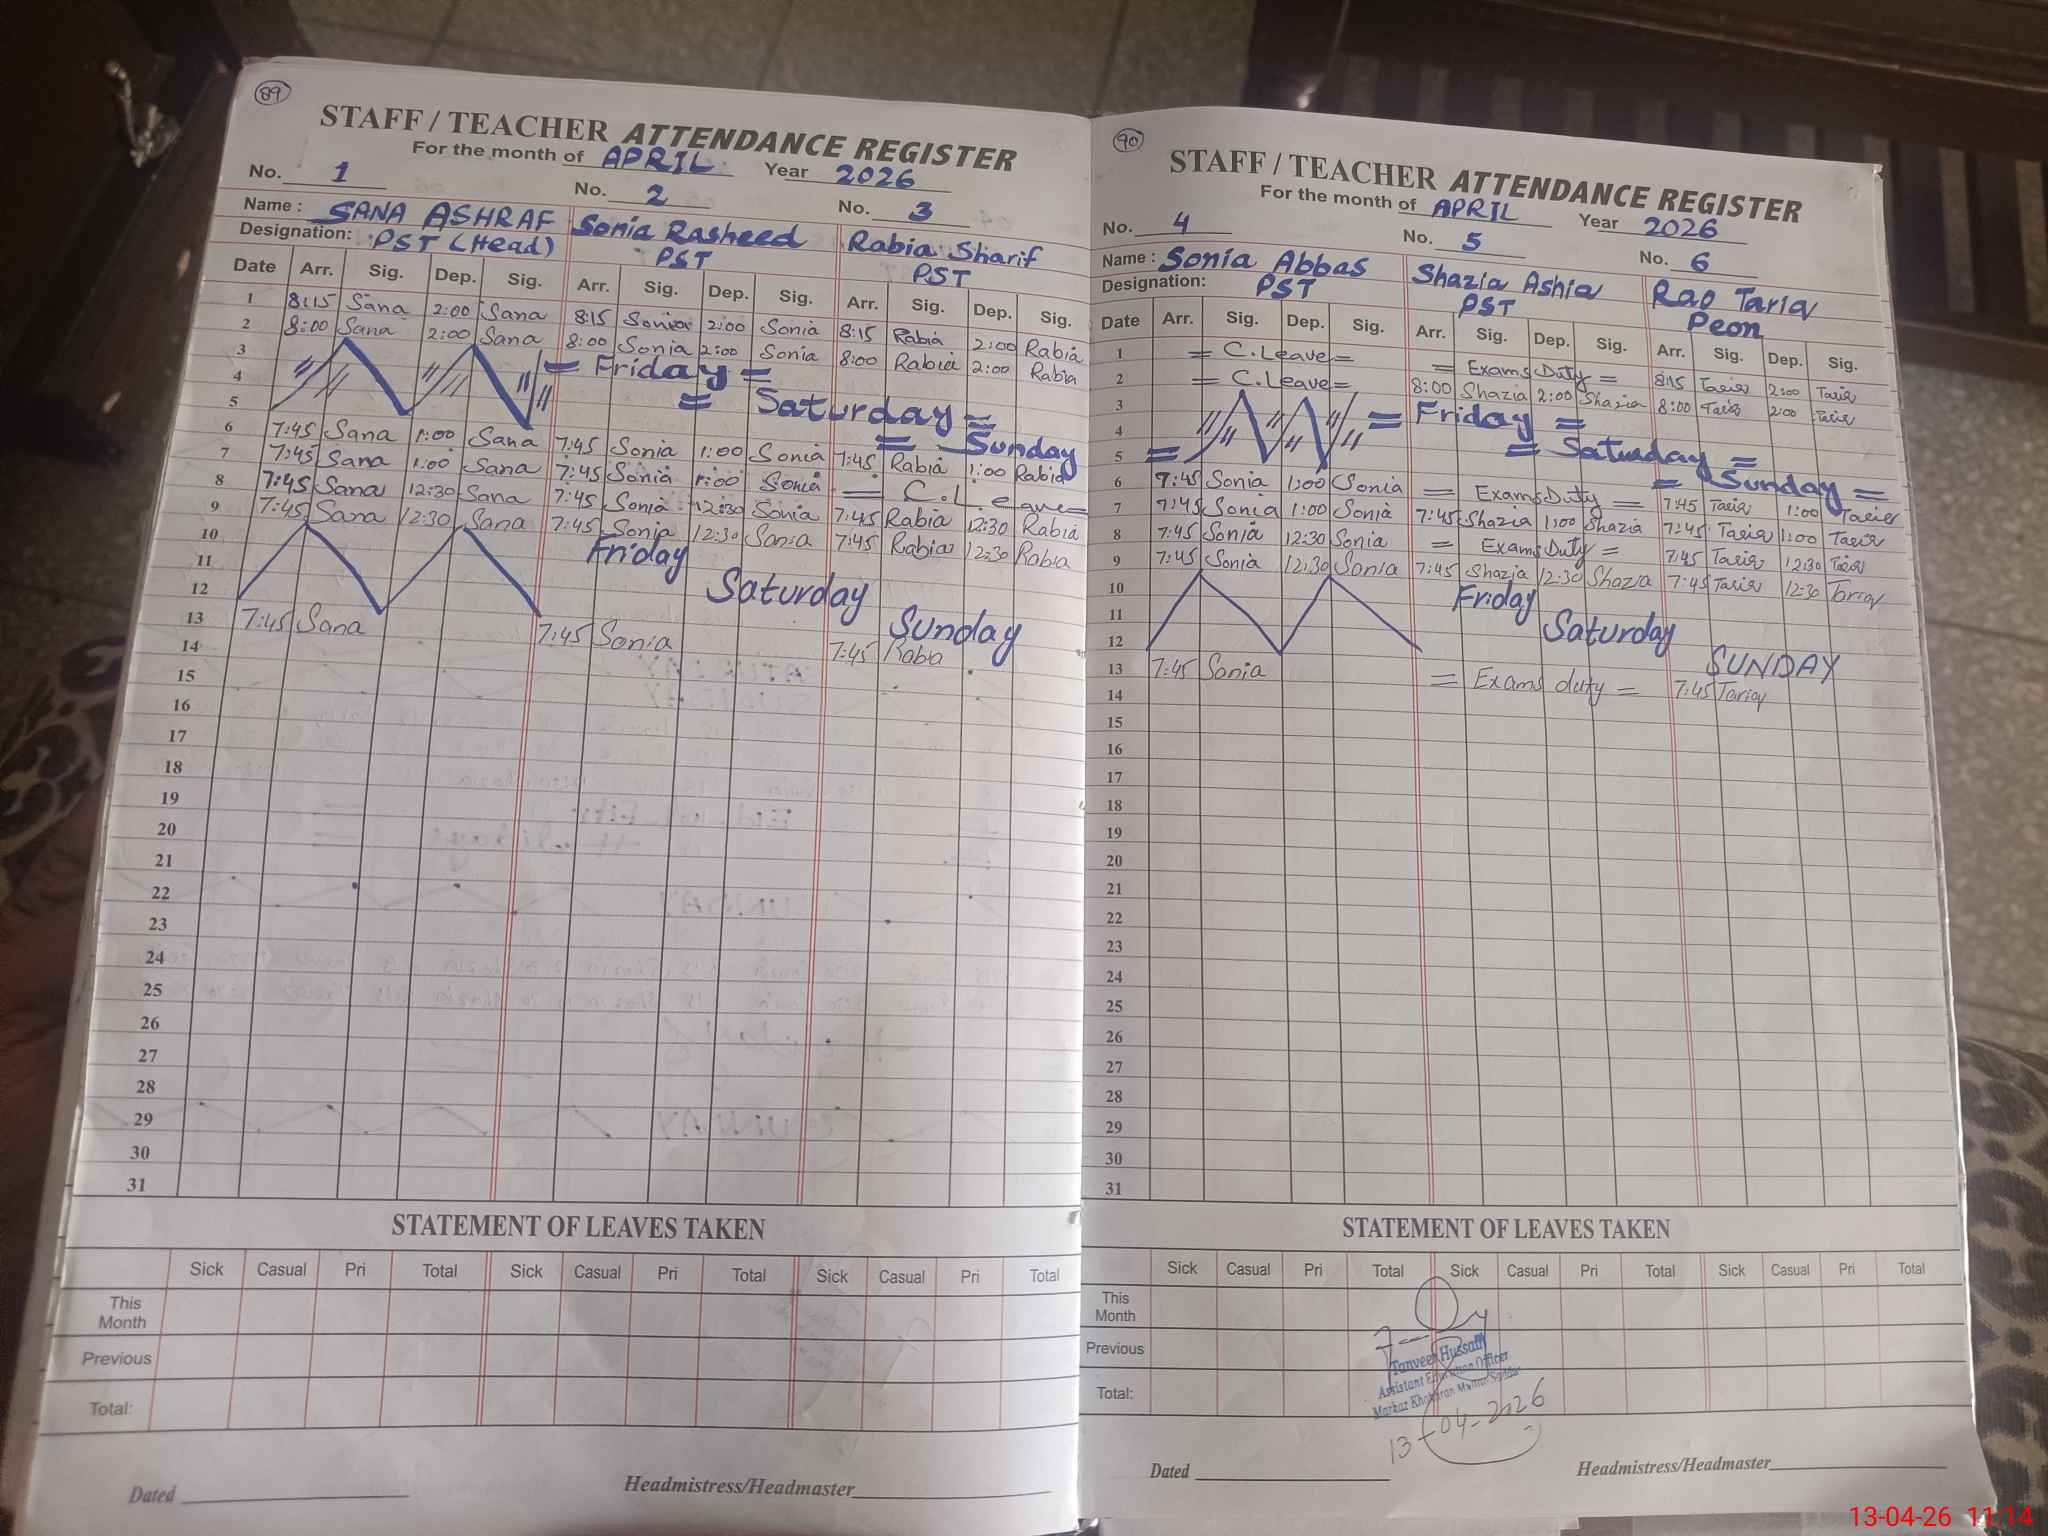 89
STAFF / TEACHER ATTENDANCE REGISTER
For the month of APRIL Year 2026
No. 1 No. 2 No. 3
Name : SANA ASHRAF Sonia Rasheed Rabia Sharif
Designation: PST (Head) PST PST
Date Arr. Sig. Dep. Sig. Arr. Sig. Dep. Sig. Arr. Sig. Dep. Sig.
1 8:15 Sana 2:00 Sana 8:15 Sonia 2:00 Sonia 8:15 Rabia 2:00 Rabia
2 8:00 Sana 2:00 Sana 8:00 Sonia 2:00 Sonia 8:00 Rabia 2:00 Rabia
3 = Friday =
4 = Saturday =
5 = Sunday
6 7:45 Sana 1:00 Sana 7:45 Sonia 1:00 Sonia 7:45 Rabia 1:00 Rabia
7 7:45 Sana 1:00 Sana 7:45 Sonia 1:00 Sonia = C.Leave =
8 7:45 Sana 12:30 Sana 7:45 Sonia 12:30 Sonia 7:45 Rabia 12:30 Rabia
9 7:45 Sana 12:30 Sana 7:45 Sonia 12:30 Sania 7:45 Rabia 12:30 Rabia
10 Friday
11 Saturday
12 Sunday
13 7:45 Sana 7:45 Sonia 7:45 Rabia
14
15
16
17
18
19
20
21
22
23
24
25
26
27
28
29
30
31
STATEMENT OF LEAVES TAKEN
Sick Casual Pri Total Sick Casual Pri Total Sick Casual Pri Total
This Month
Previous
Total:
Dated Headmistress/Headmaster
90
STAFF / TEACHER ATTENDANCE REGISTER
For the month of APRIL Year 2026
No. 4 No. 5 No. 6
Name : Sonia Abbas Shazia Ashiq Rao Tariq
Designation: PST PST Peon
Date Arr. Sig. Dep. Sig. Arr. Sig. Dep. Sig. Arr. Sig. Dep. Sig.
1 = C.Leave = = Exams Duty = 8:15 Tariq 2:00 Tariq
2 = C.Leave = 8:00 Shazia 2:00 Shazia 8:00 Tariq 2:00 Tariq
3 = Friday =
4 = Saturday =
5 = = Sunday =
6 7:45 Sonia 1:00 Sonia = Exams Duty = 7:45 Tariq 1:00 Tariq
7 7:45 Sonia 1:00 Sonia 7:45 Shazia 1:00 Shazia 7:45 Tariq 1:00 Tariq
8 7:45 Sonia 12:30 Sonia = Exams Duty = 7:45 Tariq 12:30 Tariq
9 7:45 Sonia 12:30 Sonia 7:45 Shazia 12:30 Shazia 7:45 Tariq 12:30 Tariq
10 Friday
11 Saturday
12 SUNDAY
13 7:45 Sonia = Exams duty = 7:45 Tariq
14
15
16
17
18
19
20
21
22
23
24
25
26
27
28
29
30
31
STATEMENT OF LEAVES TAKEN
Sick Casual Pri Total Sick Casual Pri Total Sick Casual Pri Total
This Month
Previous
Total:
Tanveer Hussain
Assistant Education Officer
Markaz
13-04-2026
Dated Headmistress/Headmaster
13-04-26 11:14